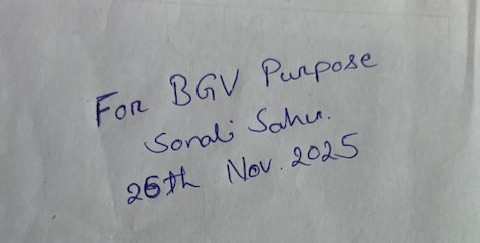 FOR BGV Purpose
Sonali Sahu.
26th Nov. 2025